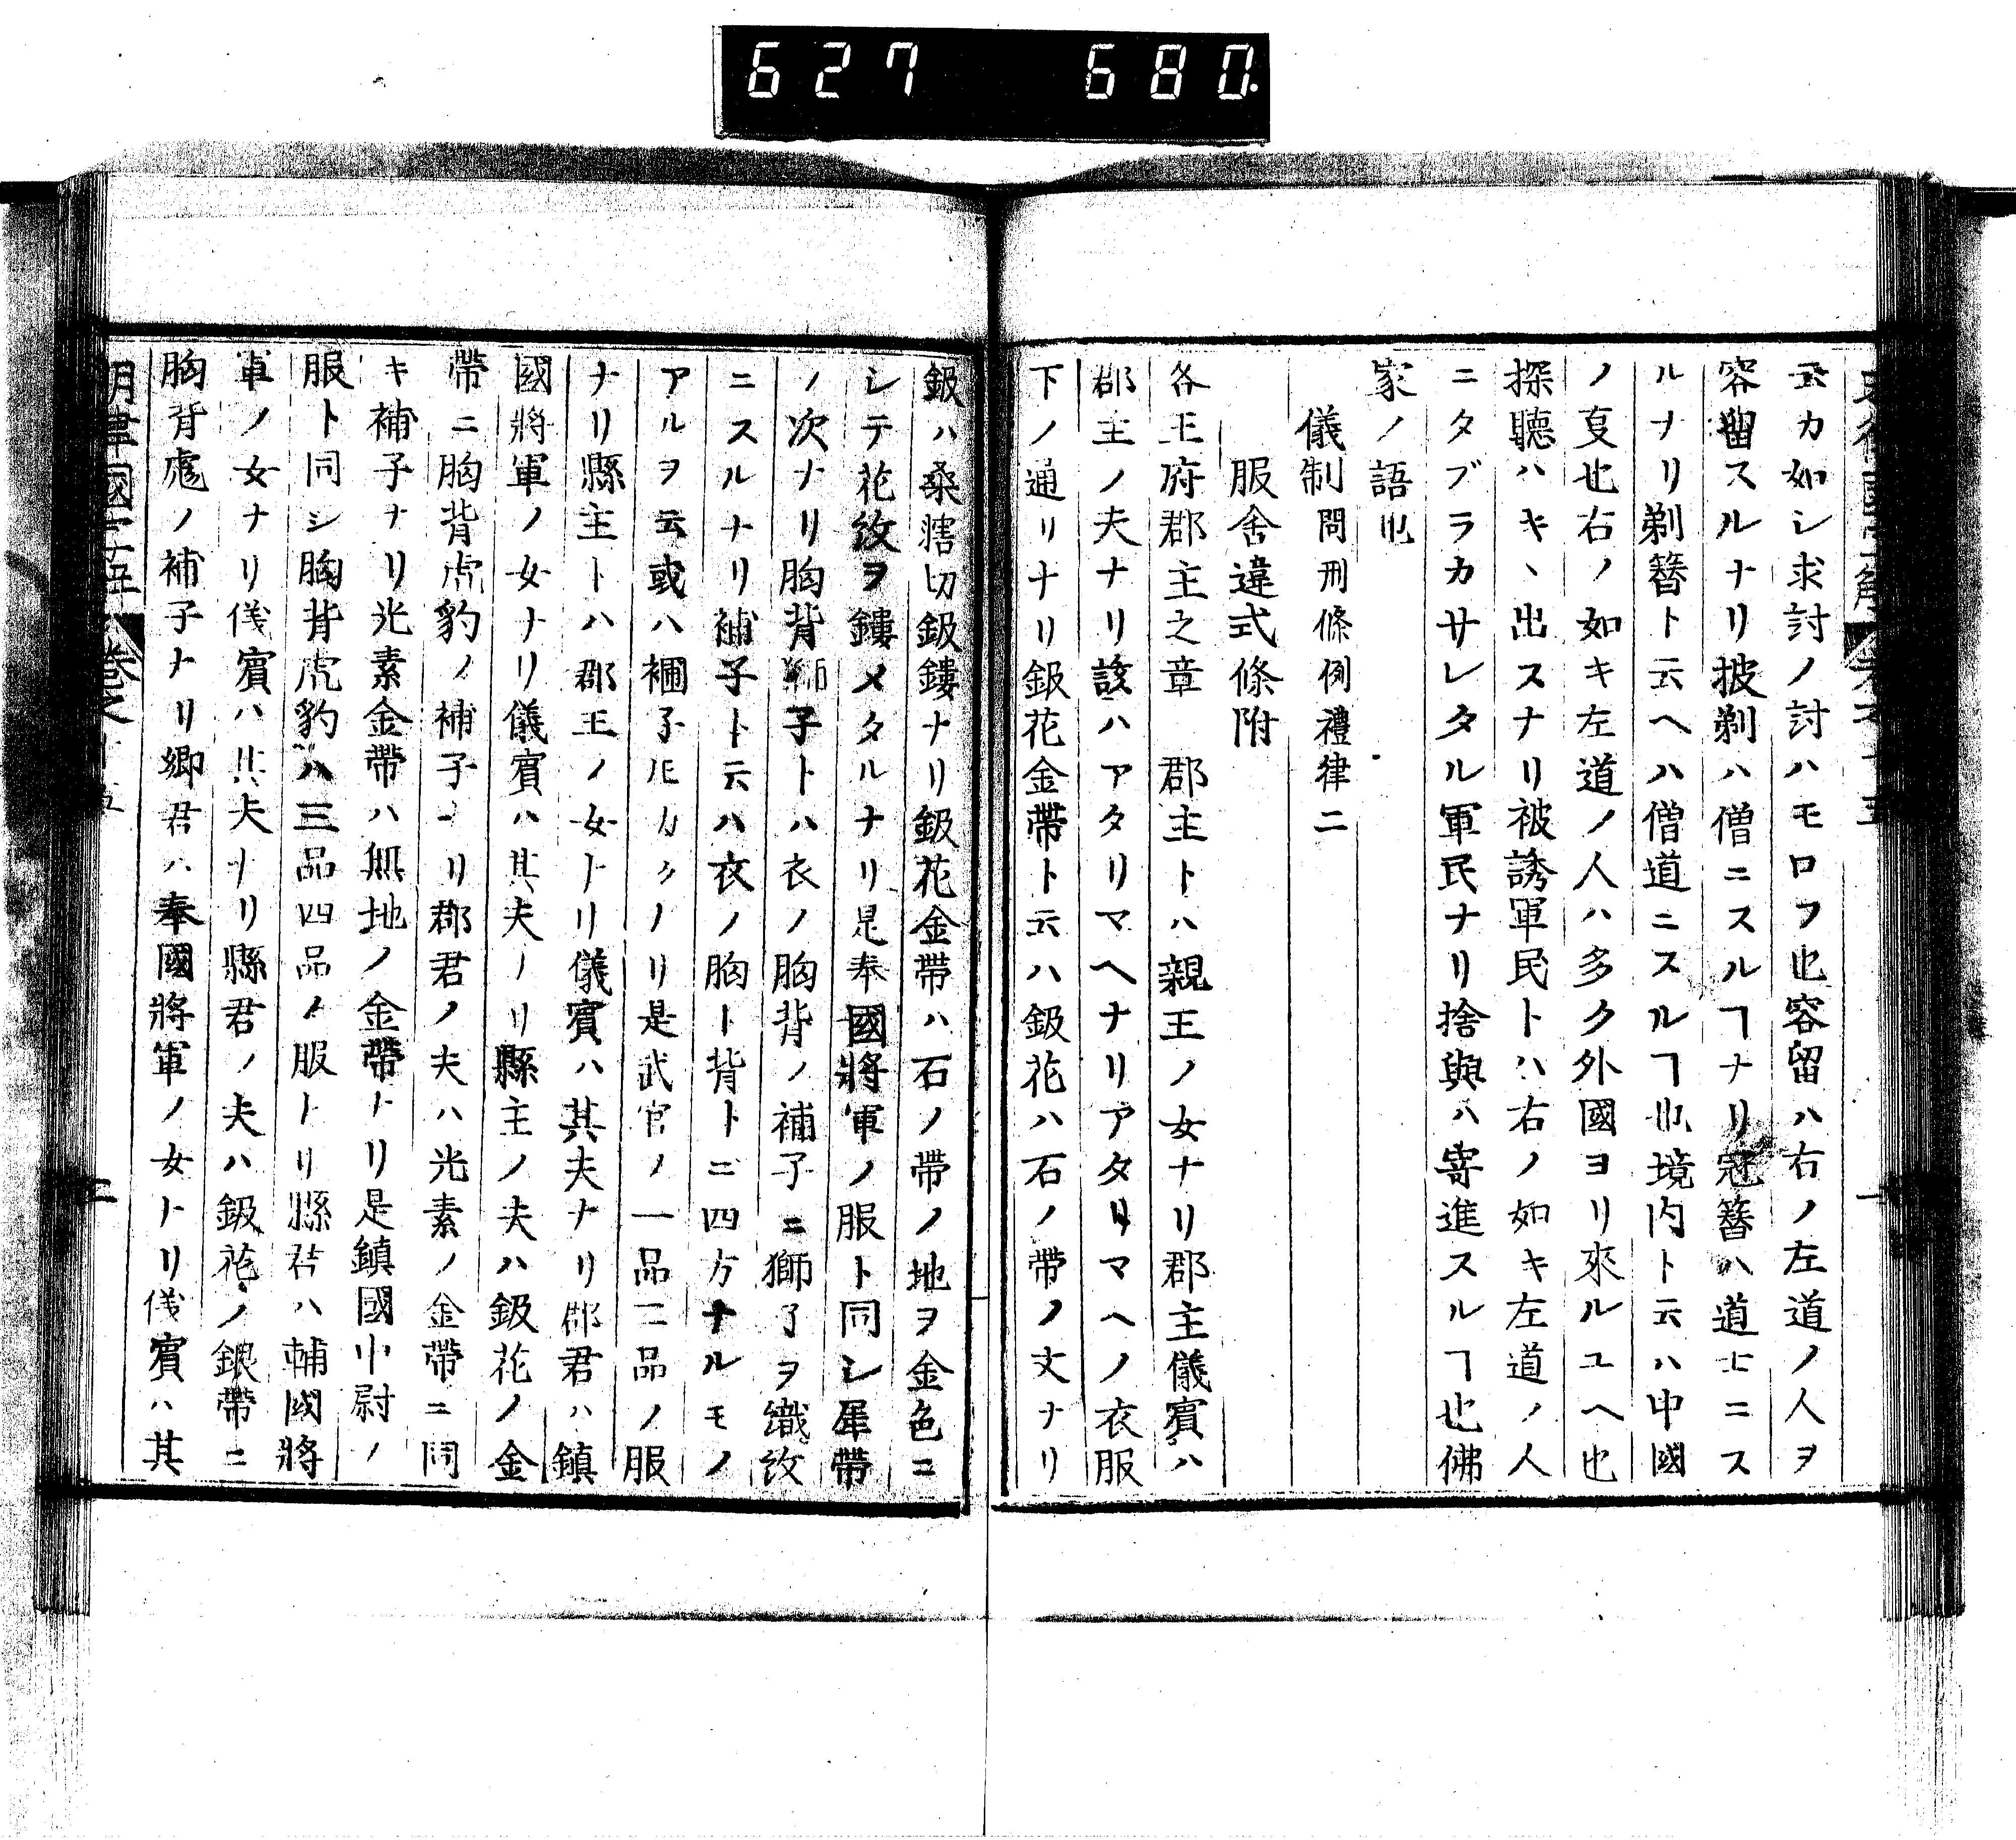 627 680
云カ如シ求討ノ討ハモロフ也容留ハ右ノ左道ノ人ヲ
容留スルナリ披剃ハ僧ニスルヿナリ冠簪ハ道士ニス
ルナリ剃簪ト云ヘハ僧道ニスルヿ也境内ト云ハ中國
ノ叓也右ノ如キ左道ノ人ハ多ク外國ヨリ來ルユヘ也
探聽ハキヽ出スナリ被誘軍民トハ右ノ如キ左道ノ人
ニタブラカサレタル軍民ナリ捨與ハ寄進スルヿ也佛
家ノ語也
儀制問刑條例禮律二
服舍違式條附
各王府郡主之章 郡主トハ親王ノ女ナリ郡主儀賓ハ
郡主ノ夫ナリ該ハアタリマヘナリアタリマヘノ衣服
下ノ通リナリ鈒花金帶ト云ハ鈒花ハ石ノ帶ノ文ナリ
鈒ハ桑轄切鈒鏤ナリ鈒花金帶ハ石ノ帶ノ地ヲ金色ニ
シテ花紋ヲ鏤メタルナリ是奉國將軍ノ服ト同シ犀帶
ノ次ナリ胸背獅子トハ衣ノ胸背ノ補子ニ獅子ヲ織紋
ニスルナリ補子ト云ハ衣ノ胸ト背トニ四方ナルモノ
アルヲ云或ハ襉子𪜈カクノリ是武官ノ一品二品ノ服
ナリ縣主トハ郡王ノ女ナリ儀賓ハ其夫ナリ郡君ハ鎮
國將軍ノ女ナリ儀賓ハ其夫ノリ縣主ノ夫ハ鈒花ノ金
帶ニ胸背虎豹ノ補子ナリ郡君ノ夫ハ光素ノ金帶ニ同
キ補子ナリ光素金帶ハ無地ノ金帶ナリ是鎮國中尉ノ
服ト同シ胸背虎豹ハ三品四品ノ服ナリ縣君ハ輔國將
軍ノ女ナリ儀賓ハ其夫ナリ縣君ノ夫ハ鈒花ノ銀帶ニ
胸背虎ノ補子ナリ鄉君ハ奉國將軍ノ女ナリ儀賓ハ其
二